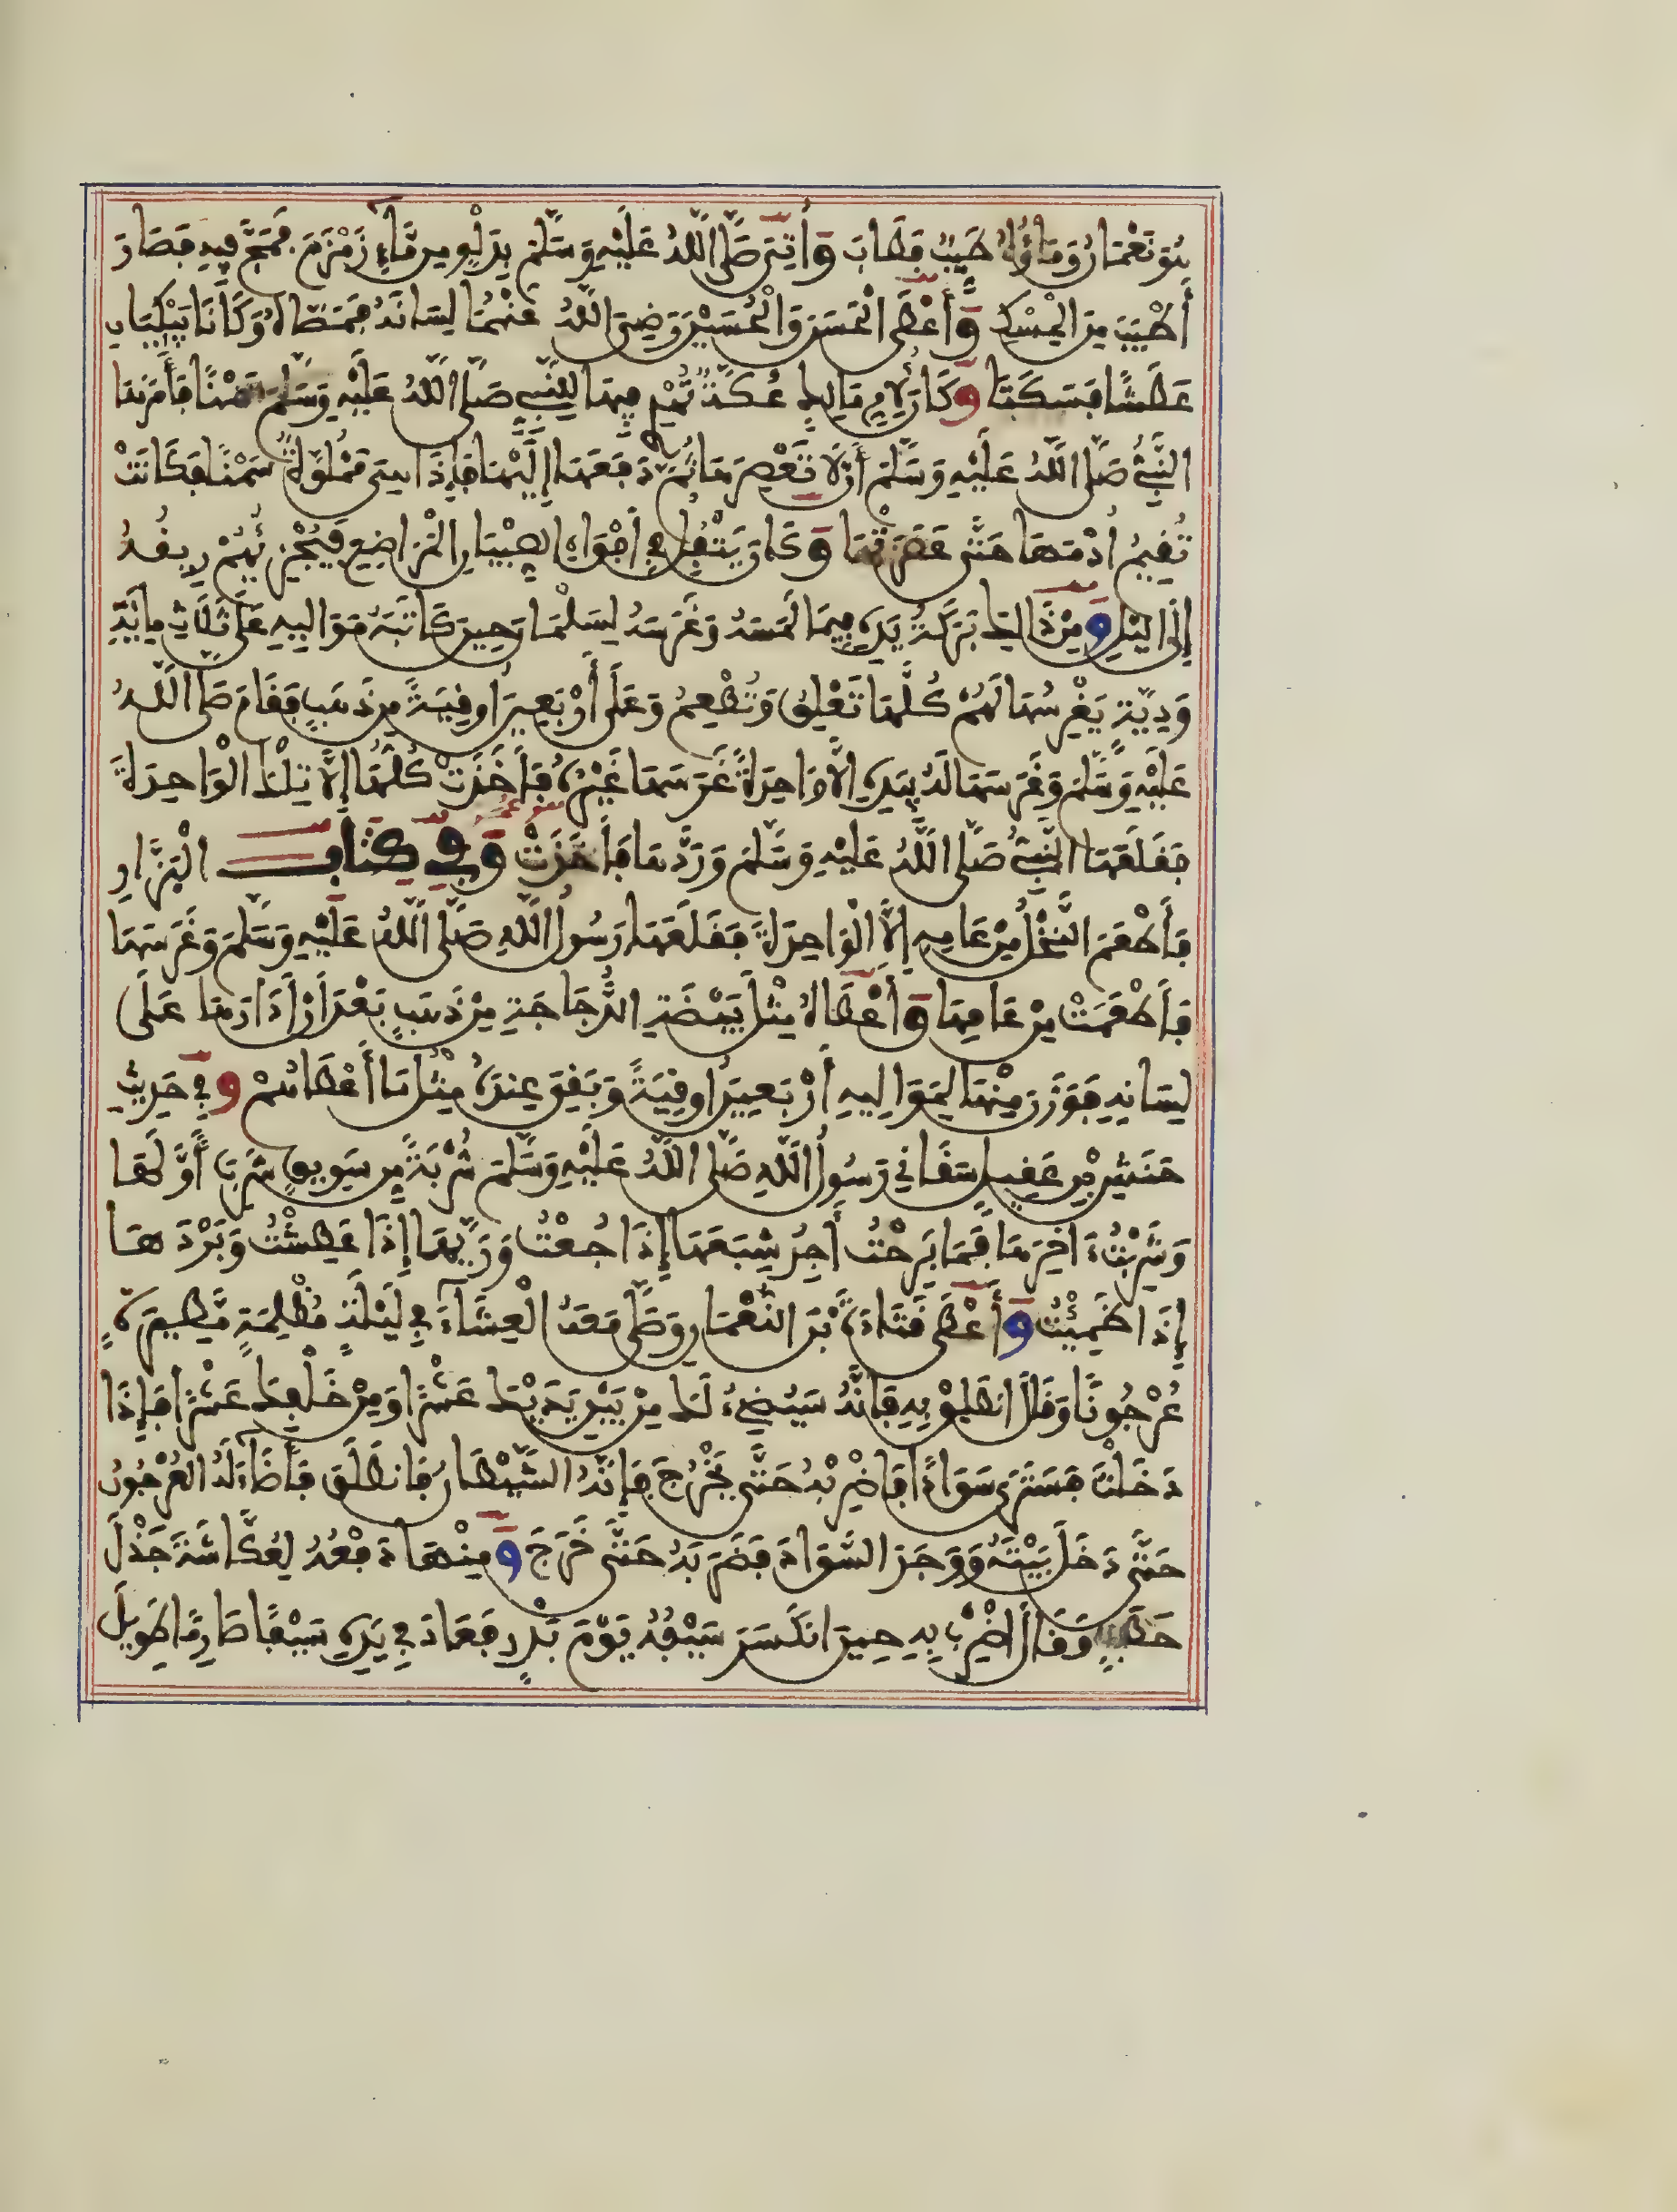 بَلْ هُوَ نَعْمَانُ وَمَاؤُهُ طَيِّبٌ فَطَابَ وَأُتِيَ صَلَّى اللَّهُ عَلَيْهِ وَسَلَّمَ بِدَلْوٍ مِن مَّاءِ زَمْزَمَ فَمَجَّ فِيهِ فَصَارَ
أَطْيَبَ مِنَ الْمِسْكِ وَأَعْطَى الْحَسَنَ وَالْحُسَيْنَ رَضِيَ اللَّهُ عَنْهُمَا لِسَانَهُ فَمَصَّاهُ وَكَانَا يَبْكِيَانِ
عَطَشًا فَسَكَتَا وَكَانَ لِأُمِّ مَالِكٍ عُكَّةٌ تُهْدِي فِيهَا لِلنَّبِيِّ صَلَّى اللَّهُ عَلَيْهِ وَسَلَّمَ سَمْنًا فَأَمَرَهَا
النَّبِيُّ صَلَّى اللَّهُ عَلَيْهِ وَسَلَّمَ أَن لَّا تَعْصِرَهَا ثُمَّ دَفَعَهَا إِلَيْهَا فَإِذَا هِيَ مَمْلُوءَةٌ سَمْنًا فَكَانَتْ
تُقِيمُ أُدْمَهَا حَتَّى عَصَرَتْهَا وَكَانَ يَتْفُلُ فِي أَفْوَاهِ الصِّبْيَانِ الْمَرَاضِعِ فَيُجْزِئُهُمْ رِيقُهُ
إِلَى اللَّيْلِ وَمِنْ ذَالِكَ بَرَكَةُ يَدِهِ فِيمَا لَمَسَهُ وَغَرَسَهُ لِسَلْمَانَ حِينَ كَاتَبَهُ مَوَالِيهِ عَلَى ثَلَاثِ مِائَةِ
وَدِيَّةٍ يَغْرِسُهَا لَهُمْ كُلُّهَا تَعْلِقُ وَتُطْعِمُ وَعَلَى أَرْبَعِينَ أُوقِيَةً مِنْ ذَهَبٍ فَقَامَ صَلَّى اللَّهُ
عَلَيْهِ وَسَلَّمَ وَغَرَسَهَا لَهُ بِيَدِهِ إِلَّا وَاحِدَةً غَرَسَهَا غَيْرُهُ فَأَخَذَتْ كُلُّهَا إِلَّا تِلْكَ الْوَاحِدَةَ
فَقَلَعَهَا النَّبِيُّ صَلَّى اللَّهُ عَلَيْهِ وَسَلَّمَ وَرَدَّهَا فَأَخَذَتْ وَفِي كِتَابِ الْبَزَّارِ
فَأَطْعَمَ النَّخْلُ مِنْ عَامِهِ إِلَّا الْوَاحِدَةَ فَقَلَعَهَا رَسُولُ اللَّهِ صَلَّى اللَّهُ عَلَيْهِ وَسَلَّمَ وَغَرَسَهَا
فَأَطْعَمَتْ مِنْ عَامِهَا وَأَعْطَاهُ مِثْلَ بَيْضَةِ الدَّجَاجَةِ مِنْ ذَهَبٍ بَعْدَ أَنْ أَدَارَهَا عَلَى
لِسَانِهِ فَوَزَنَ مِنْهَا لِمَوَالِيهِ أَرْبَعِينَ أُوقِيَةً وَبَقِيَ عِنْدَهُ مِثْلُ مَا أَعْطَاهُمْ وَفِي حَدِيثِ
حَنَشِ بْنِ عَقِيلٍ سَقَانِي رَسُولُ اللَّهِ صَلَّى اللَّهُ عَلَيْهِ وَسَلَّمَ شُرْبَةً مِن سَوِيقٍ شَرِبَ أَوَّلَهَا
وَشَرِبْتُ ءَاخِرَهَا فَمَا بَرِحْتُ أَجِدُ شِبَعَهَا إِذَا جُعْتُ وَرِيَّهَا إِذَا عَطِشْتُ وَبَرْدَهَا
إِذَا ظَمِئْتُ وَأَعْطَى قَتَادَةَ بْنَ النُّعْمَانِ وَصَلَّى مَعَهُ الْعِشَاءَ فِي لَيْلَةٍ مُظْلِمَةٍ مَطِيرَةٍ
عُرْجُونًا وَقَالَ انْطَلِقْ بِهِ فَإِنَّهُ سَيُضِيءُ لَكَ مِنْ بَيْنِ يَدَيْكَ عَشْرًا وَمِنْ خَلْفِكَ عَشْرًا فَإِذَا
دَخَلْتَ فَسَتَرَى سَوَادًا فَاضْرِبْهُ حَتَّى يَخْرُجَ فَإِنَّهُ الشَّيْطَانُ فَانْطَلَقَ فَأَضَاءَ لَهُ الْعُرْجُونُ
حَتَّى دَخَلَ بَيْتَهُ وَوَجَدَ السَّوَادَ فَضَرَبَهُ حَتَّى خَرَجَ وَمِنْهَا دَفْعُهُ لِعُكَّاشَةَ جِذْلَ
حَطَبٍ وَقَالَ اضْرِبْ بِهِ حِينَ انْكَسَرَ سَيْفُهُ يَوْمَ بَدْرٍ فَعَادَ فِي يَدِهِ سَيْفًا صَارِمًا طَوِيلَ